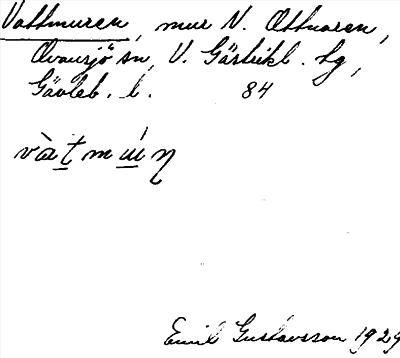 Vattmuren, mur N. Ottnaren,
Ovansjö sn, V. Gästrikl. tg,
Gävleb. l. 84
vàt múṇ
Emil Gustavsson 1929